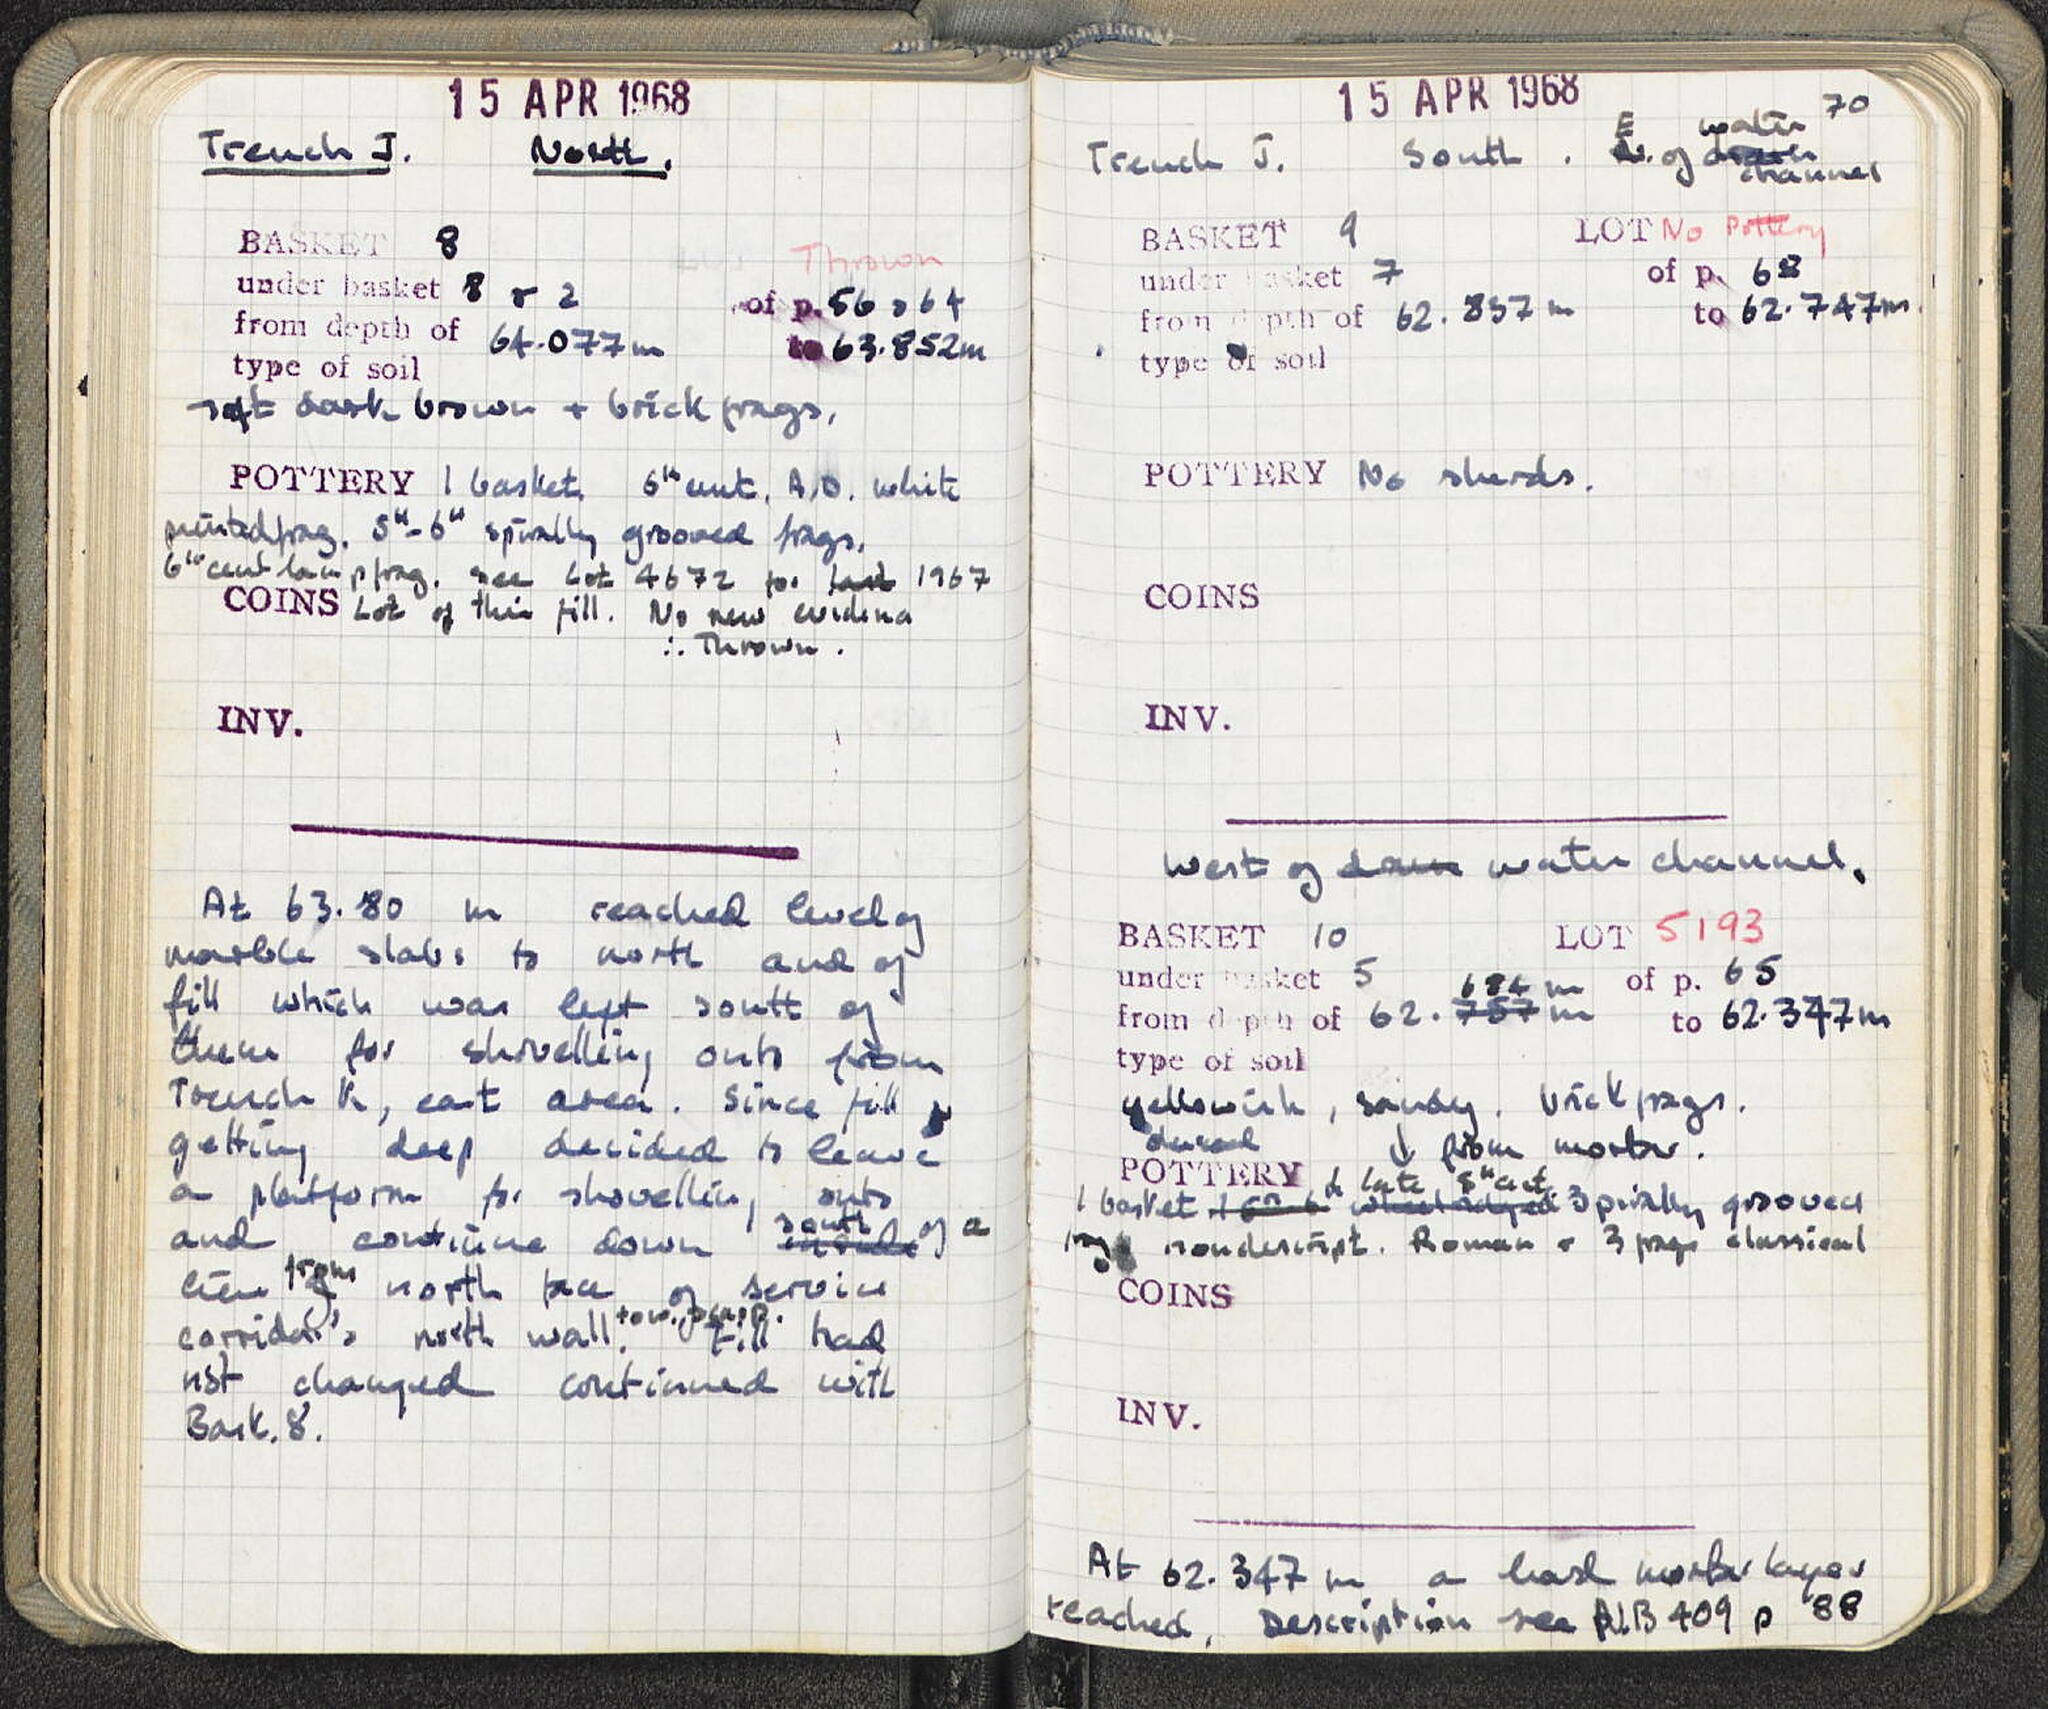 15 APR 1968
Trench J. North.
BASKET 8 Thrown
under basket 8 + 2 of p. 56 + 64
from depth of 64.077m to 63.852m
type of soil
soft dark brown + brick frags.
POTTERY 1 basket 6th cent. A.D. white
painted frag. 5th-6th spirally grooved frags.
6th cent lamp frag. see Lot 4672 for last 1967
COINS Lot of this fill. No new evidence
∴ Thrown.
INV.
At 63.80 m reached level of
marble slabs to north and of
fill which was left south of
them for shovelling onto from
Trench K, east area. Since fill
getting deep decided to leave
a platform for shovelling onto
and continue down south of a
line from north face of service
corridor's north wall. Fill had
not changed continued with
Bask. 8.
15 APR 1968
70
Trench J. South. E of water
channel
BASKET 9 LOT No Pottery
under basket 7 of p. 68
from depth of 62.837m to 62.747m.
type of soil
POTTERY No sherds.
COINS
INV.
West of water channel.
BASKET 10 LOT 5193
under basket 5 of p. 65
684 m
from depth of 62.757m to 62.347m
type of soil
yellowish, sandy, brick frags.
↓ from mortar.
POTTERY
late 5th cent
1 basket spirally grooved
frag nondescript. Roman + 3 frags classical
COINS
INV.
At 62.347m a hard mortar layer
reached. Description see NB 409 p 88